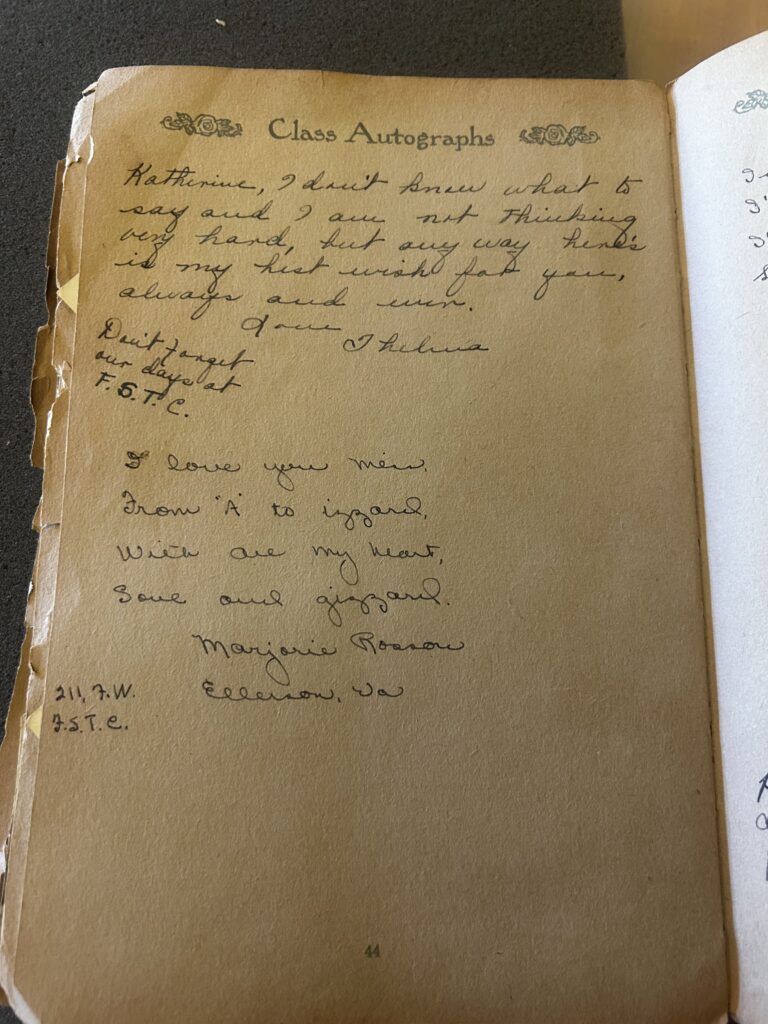 Class Autographs
Katherine, I don't know what to
say and I am not thinking
very hard, but any way here's
is my best wish for you,
always and ever.
Love
Thelma
Don't forget
our days at
F.S.T.C.
I love you
From "A" to izzard,
With all my heart,
Soul and gizzard.
Marjorie
Ellerson, Va
211, F.W.
F.S.T.C.
44